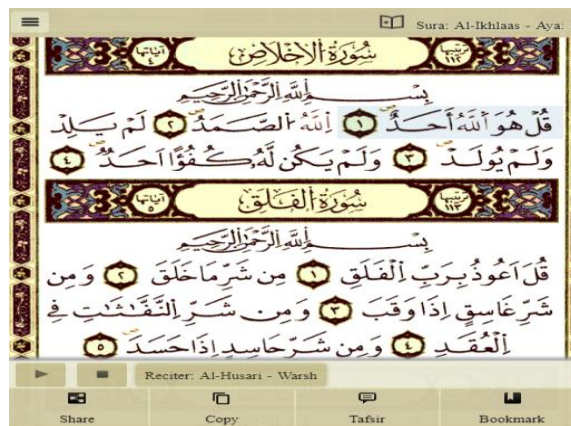 Sura: Al-Ikhlaas - Aya:
سُورَةُ الْإِخْلَاصِ
ترتيبها ١١٢
آياتها ٤
بِسْمِ اللَّهِ الرَّحْمَٰنِ الرَّحِيمِ
قُلْ هُوَ اَ۬للَّهُ أَحَدٌ ١ اَ۬للَّهُ اُ۬لصَّمَدُ ٢ لَمْ يَلِدْ
وَلَمْ يُولَدْ ٣ وَلَمْ يَكُن لَّهُۥ كُفُؤًا اَحَدٌ ٤
سُورَةُ الْفَلَقِ
ترتيبها ١١٣
آياتها ٥
بِسْمِ اللَّهِ الرَّحْمَٰنِ الرَّحِيمِ
قُلَ اَعُوذُ بِرَبِّ اِ۬لْفَلَقِ ١ مِن شَرِّ مَا خَلَقَ ٢ وَمِن
شَرِّ غَاسِقٍ اِذَا وَقَبَ ٣ وَمِن شَرِّ اِ۬لنَّفَّٰثَٰتِ فِے
اِ۬لْعُقَدِ ٤ وَمِن شَرِّ حَاسِدٍ اِذَا حَسَدَ ٥
Reciter: Al-Husari - Warsh
Share Copy Tafsir Bookmark